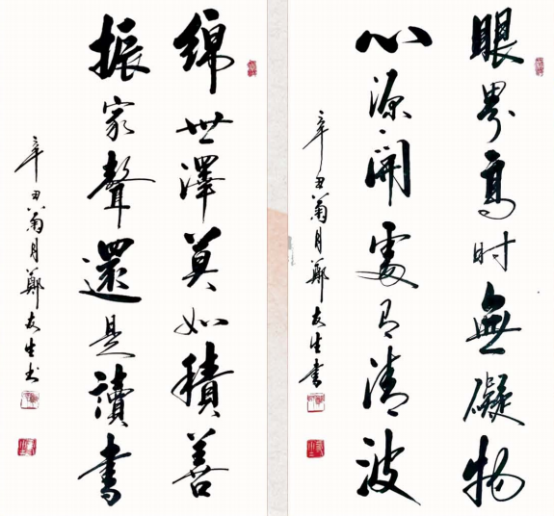 眼界高时無礙物
心源開處有清波
辛丑菊月鄭友生書
綿世澤莫如積善
振家聲還是讀書
辛丑菊月鄭友生书